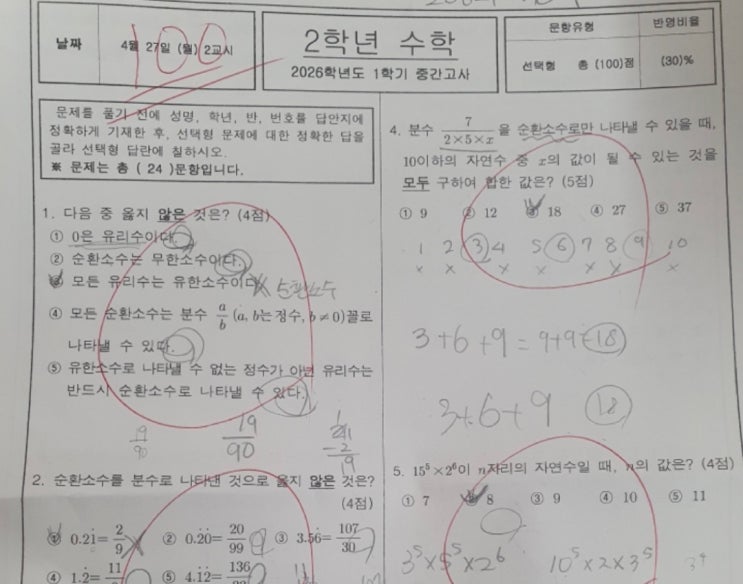 날짜
4월 27일 (월) 2교시
100
2학년 수학
2026학년도 1학기 중간고사
문항유형
반영비율
선택형 총 (100)점
(30)%
문제를 풀기 전에 성명, 학년, 반, 번호를 답안지에
정확하게 기재한 후, 선택형 문제에 대한 정확한 답을
골라 선택형 답란에 칠하시오.
※ 문제는 총 ( 24 )문항입니다.
1. 다음 중 옳지 않은 것은? (4점)
① 0은 유리수이다.
② 순환소수는 무한소수이다.
③ 모든 유리수는 유한소수이다. 순환소수
④ 모든 순환소수는 분수 a/b (a, b는 정수, b≠0)꼴로
나타낼 수 있다.
⑤ 유한소수로 나타낼 수 없는 정수가 아닌 유리수는
반드시 순환소수로 나타낼 수 있다.
19/90 19/90 21 −2 19
2. 순환소수를 분수로 나타낸 것으로 옳지 않은 것은?
(4점)
① 0.21̇=2/9 ② 0.2̇0̇=20/99 ③ 3.56̇=107/30
④ 1.2̇=11 ⑤ 4.1̇2̇=136
4. 분수 7/(2×5×x)을 순환소수로만 나타낼 수 있을 때,
10이하의 자연수 중 x의 값이 될 수 있는 것을
모두 구하여 합한 값은? (5점)
① 9 ② 12 ③ 18 ④ 27 ⑤ 37
1 2 3 4 5 6 7 8 9 10
× × × × × × ×
3+6+9=9+9=18
3+6+9 18
5. 15⁵×2⁶이 n자리의 자연수일 때, n의 값은? (4점)
① 7 ② 8 ③ 9 ④ 10 ⑤ 11
3⁵×5⁵×2⁶ 10⁵×2×3⁵